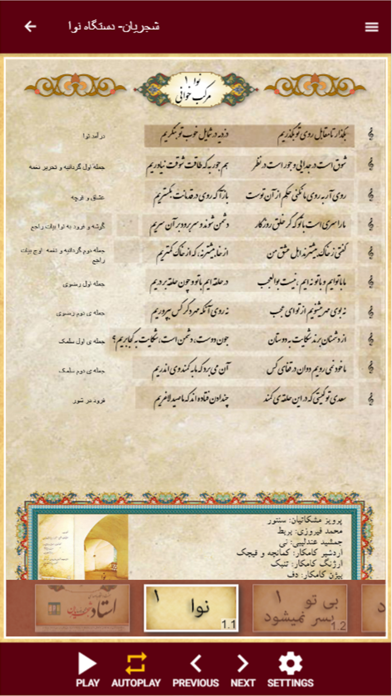 شجریان- دستگاه نوا
نوا ۱
مرکب خوانی
بگذار تا مقابل روی تو بگذریم دزدیده در شمایل خوب تو بنگریم درآمد نوا
شوق است در جدایی و جور است در نظر هم جور به که طاقت شوقت نیاوریم جمله اول گردانیه و تحریر نغمه
روی ار به روی ما نکنی حکم از آن توست بازآ که روی در قدمانت بگستریم عشاق و قرچه
ما را سری است با تو که گر خلق روزگار دشمن شوند و سر برود بر آن سریم گوشه و فرود به نوا بیات راجع
گفتی ز خاک بیشترند اهل عشق من از خاک بیشتر نه، که از خاک کمتریم جمله دوم گردانیه و نغمه اوج بیات راجع
ما با توایم و با تو نه ایم، نیست بوالعجب در حلقه ایم با تو و چون حلقه بر دریم جمله اول رضوی
نه بوی مهر می‌شنویم از تو ای عجب نه روی آنکه مهر دگر کس بپروریم جمله ی دوم رضوی
از دشمنان برند شکایت به دوستان چون دوست، دشمن است، شکایت به کجا بریم؟ جمله ی اول سلمک
ما خود نمی رویم دوان در قفای کس آن می برد که ما به کمند وی اندریم جمله ی دوم سلمک
سعدی تو کیستی که در این حلقه ی کمند چندان فتاده اند که ما صید لاغریم فرود در شور
پرویز مشکاتیان: سنتور
محمد فیروزی: بربط
جمشید عندلیبی: نی
اردشیر کامکار: کمانچه و قیچک
ارژنگ کامکار: تنبک
بیژن کامکار: دف
استاد
نوا ۱
1.1
بی تو ۱
بسر نمیشود
1.2
PLAY
AUTOPLAY
PREVIOUS
NEXT
SETTINGS